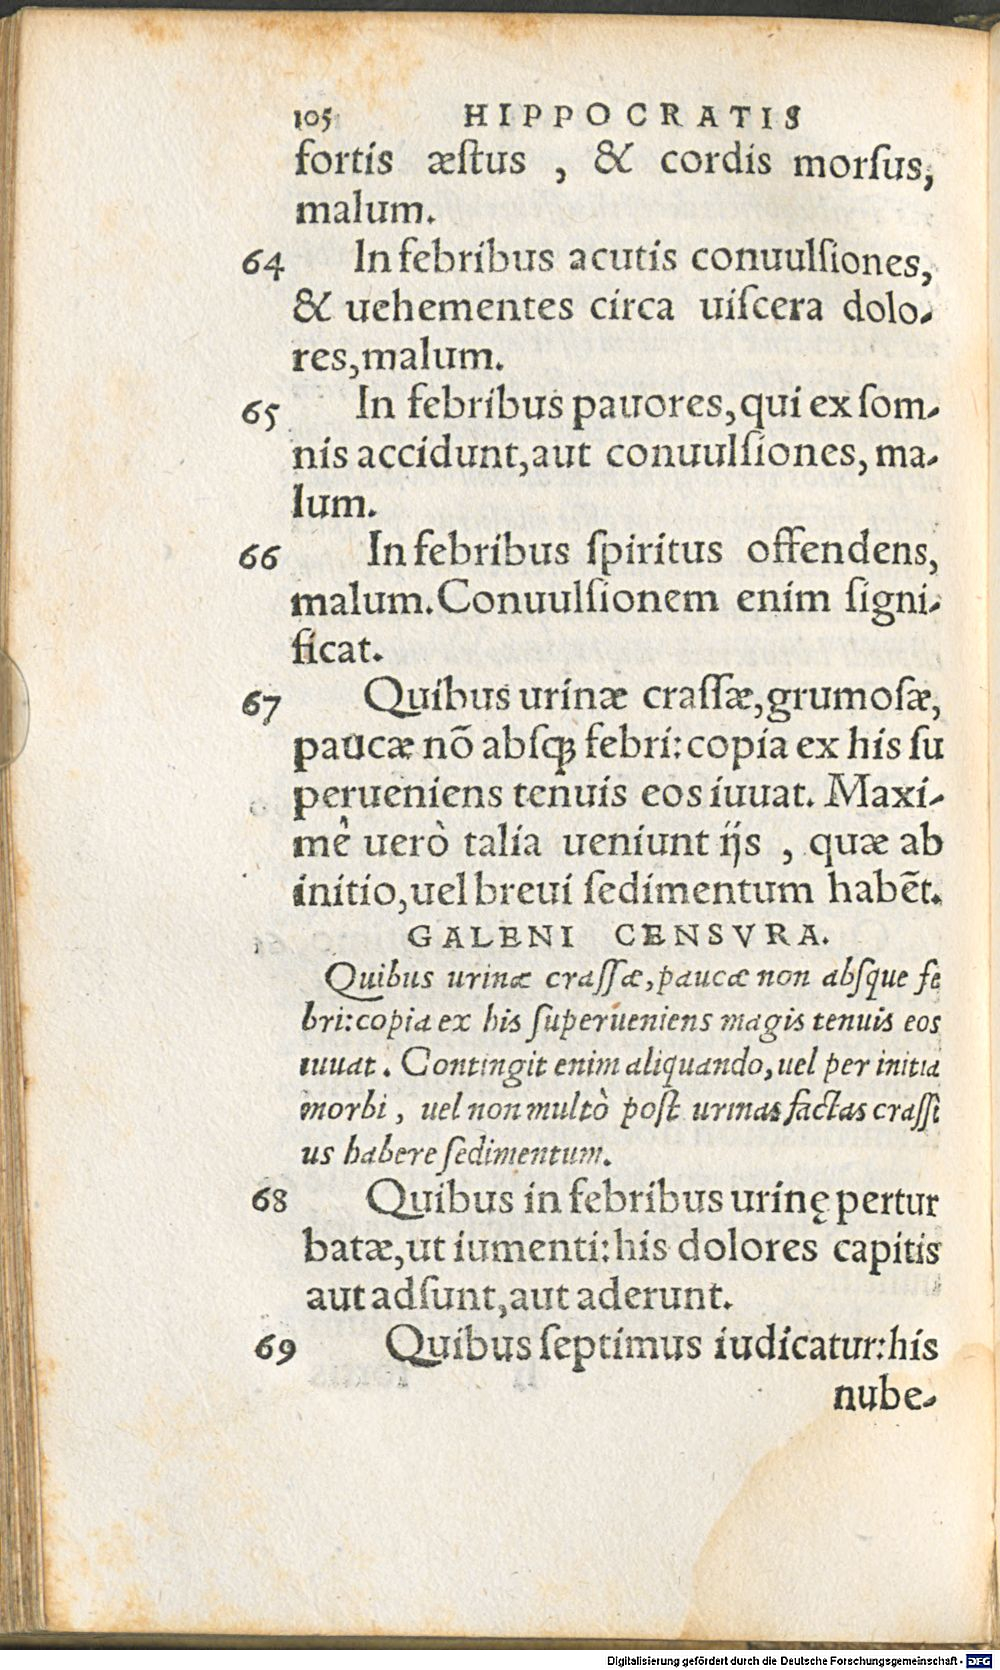 105 HIPPOCRATIS
fortis æſtus , & cordis morſus,
malum.
64 In febribus acutis conuulſiones,
& uehementes circa uiſcera dolo-
res,malum.
65 In febribus pauores,qui ex ſom-
nis accidunt,aut conuulſiones, ma-
lum.
66 In febribus ſpiritus offendens,
malum.Conuulſionem enim ſigni-
ficat.
67 Quibus urinæ craſſæ,grumoſæ,
paucæ nō abſqꝫ febri:copia ex his ſu
perueniens tenuis eos iuuat. Maxi-
mè uerò talia ueniunt ijs , quæ ab
initio,uel breui ſedimentum habēt.
GALENI CENSVRA.
Quibus urinæ craſſæ,paucæ non abſque fe
bri:copia ex his ſuperueniens magis tenuis eos
iuuat . Contingit enim aliquando,uel per initia
morbi , uel non multò poſt urinas factas craſſi
us habere ſedimentum.
68 Quibus in febribus urinę pertur
batæ,ut iumenti:his dolores capitis
aut adſunt,aut aderunt.
69 Quibus ſeptimus iudicatur:his
nube-
Digitalisierung gefördert durch die Deutsche Forschungsgemeinschaft - DFG